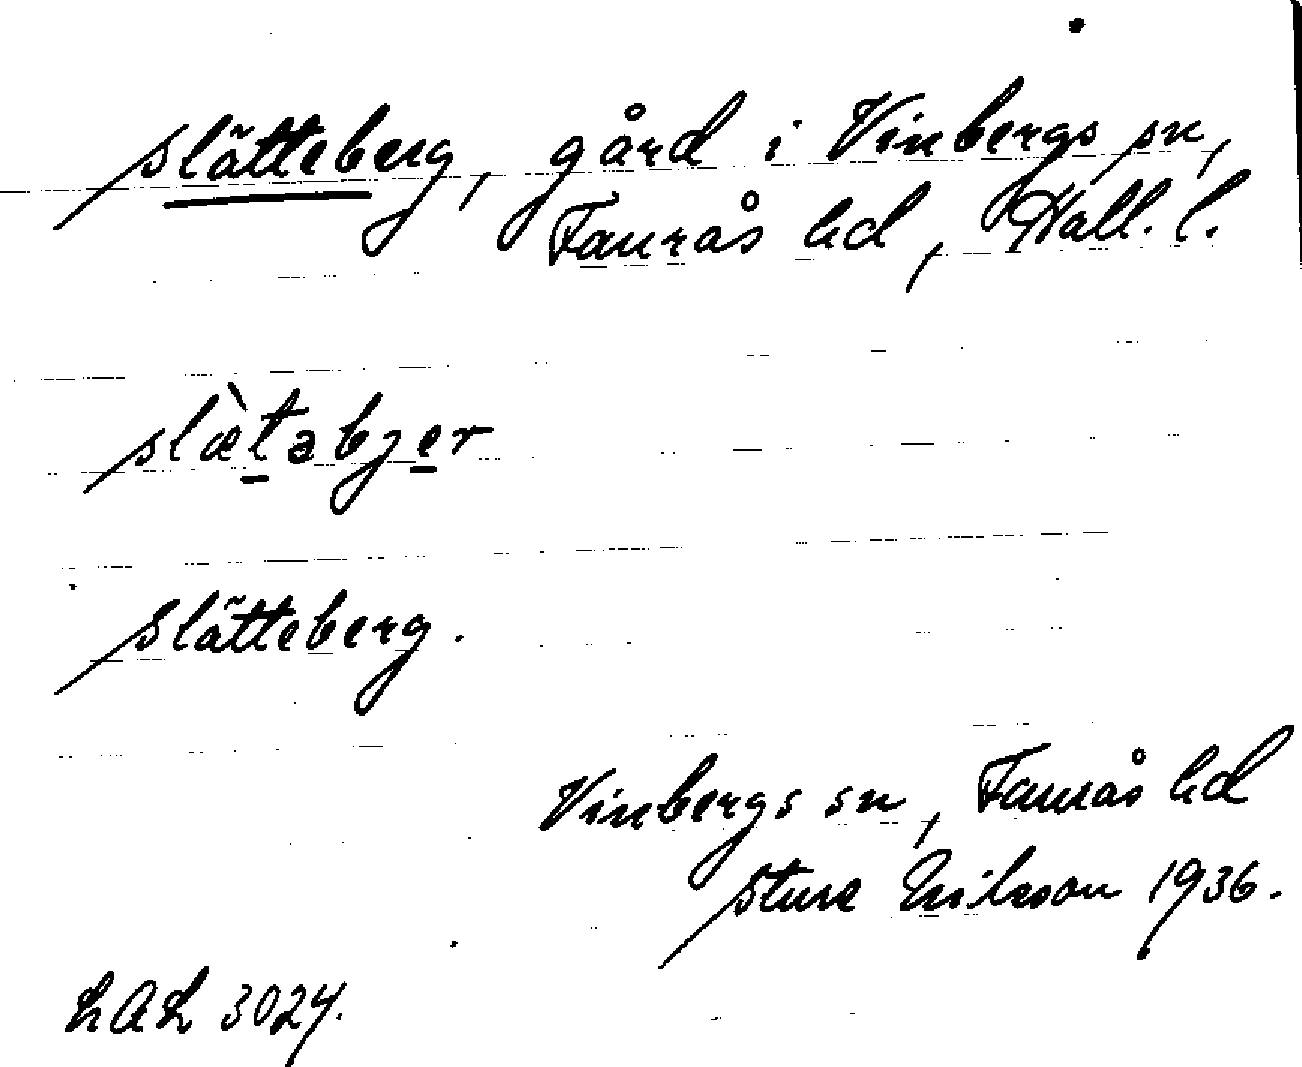 Slätteberg, gård i Vinbergs sn,
Faurås hd, Hall. l.
slæ̀təbjer
Slätteberg.
Vinbergs sn, Faurås hd
Sture Erikson 1936.
LAL 3024.